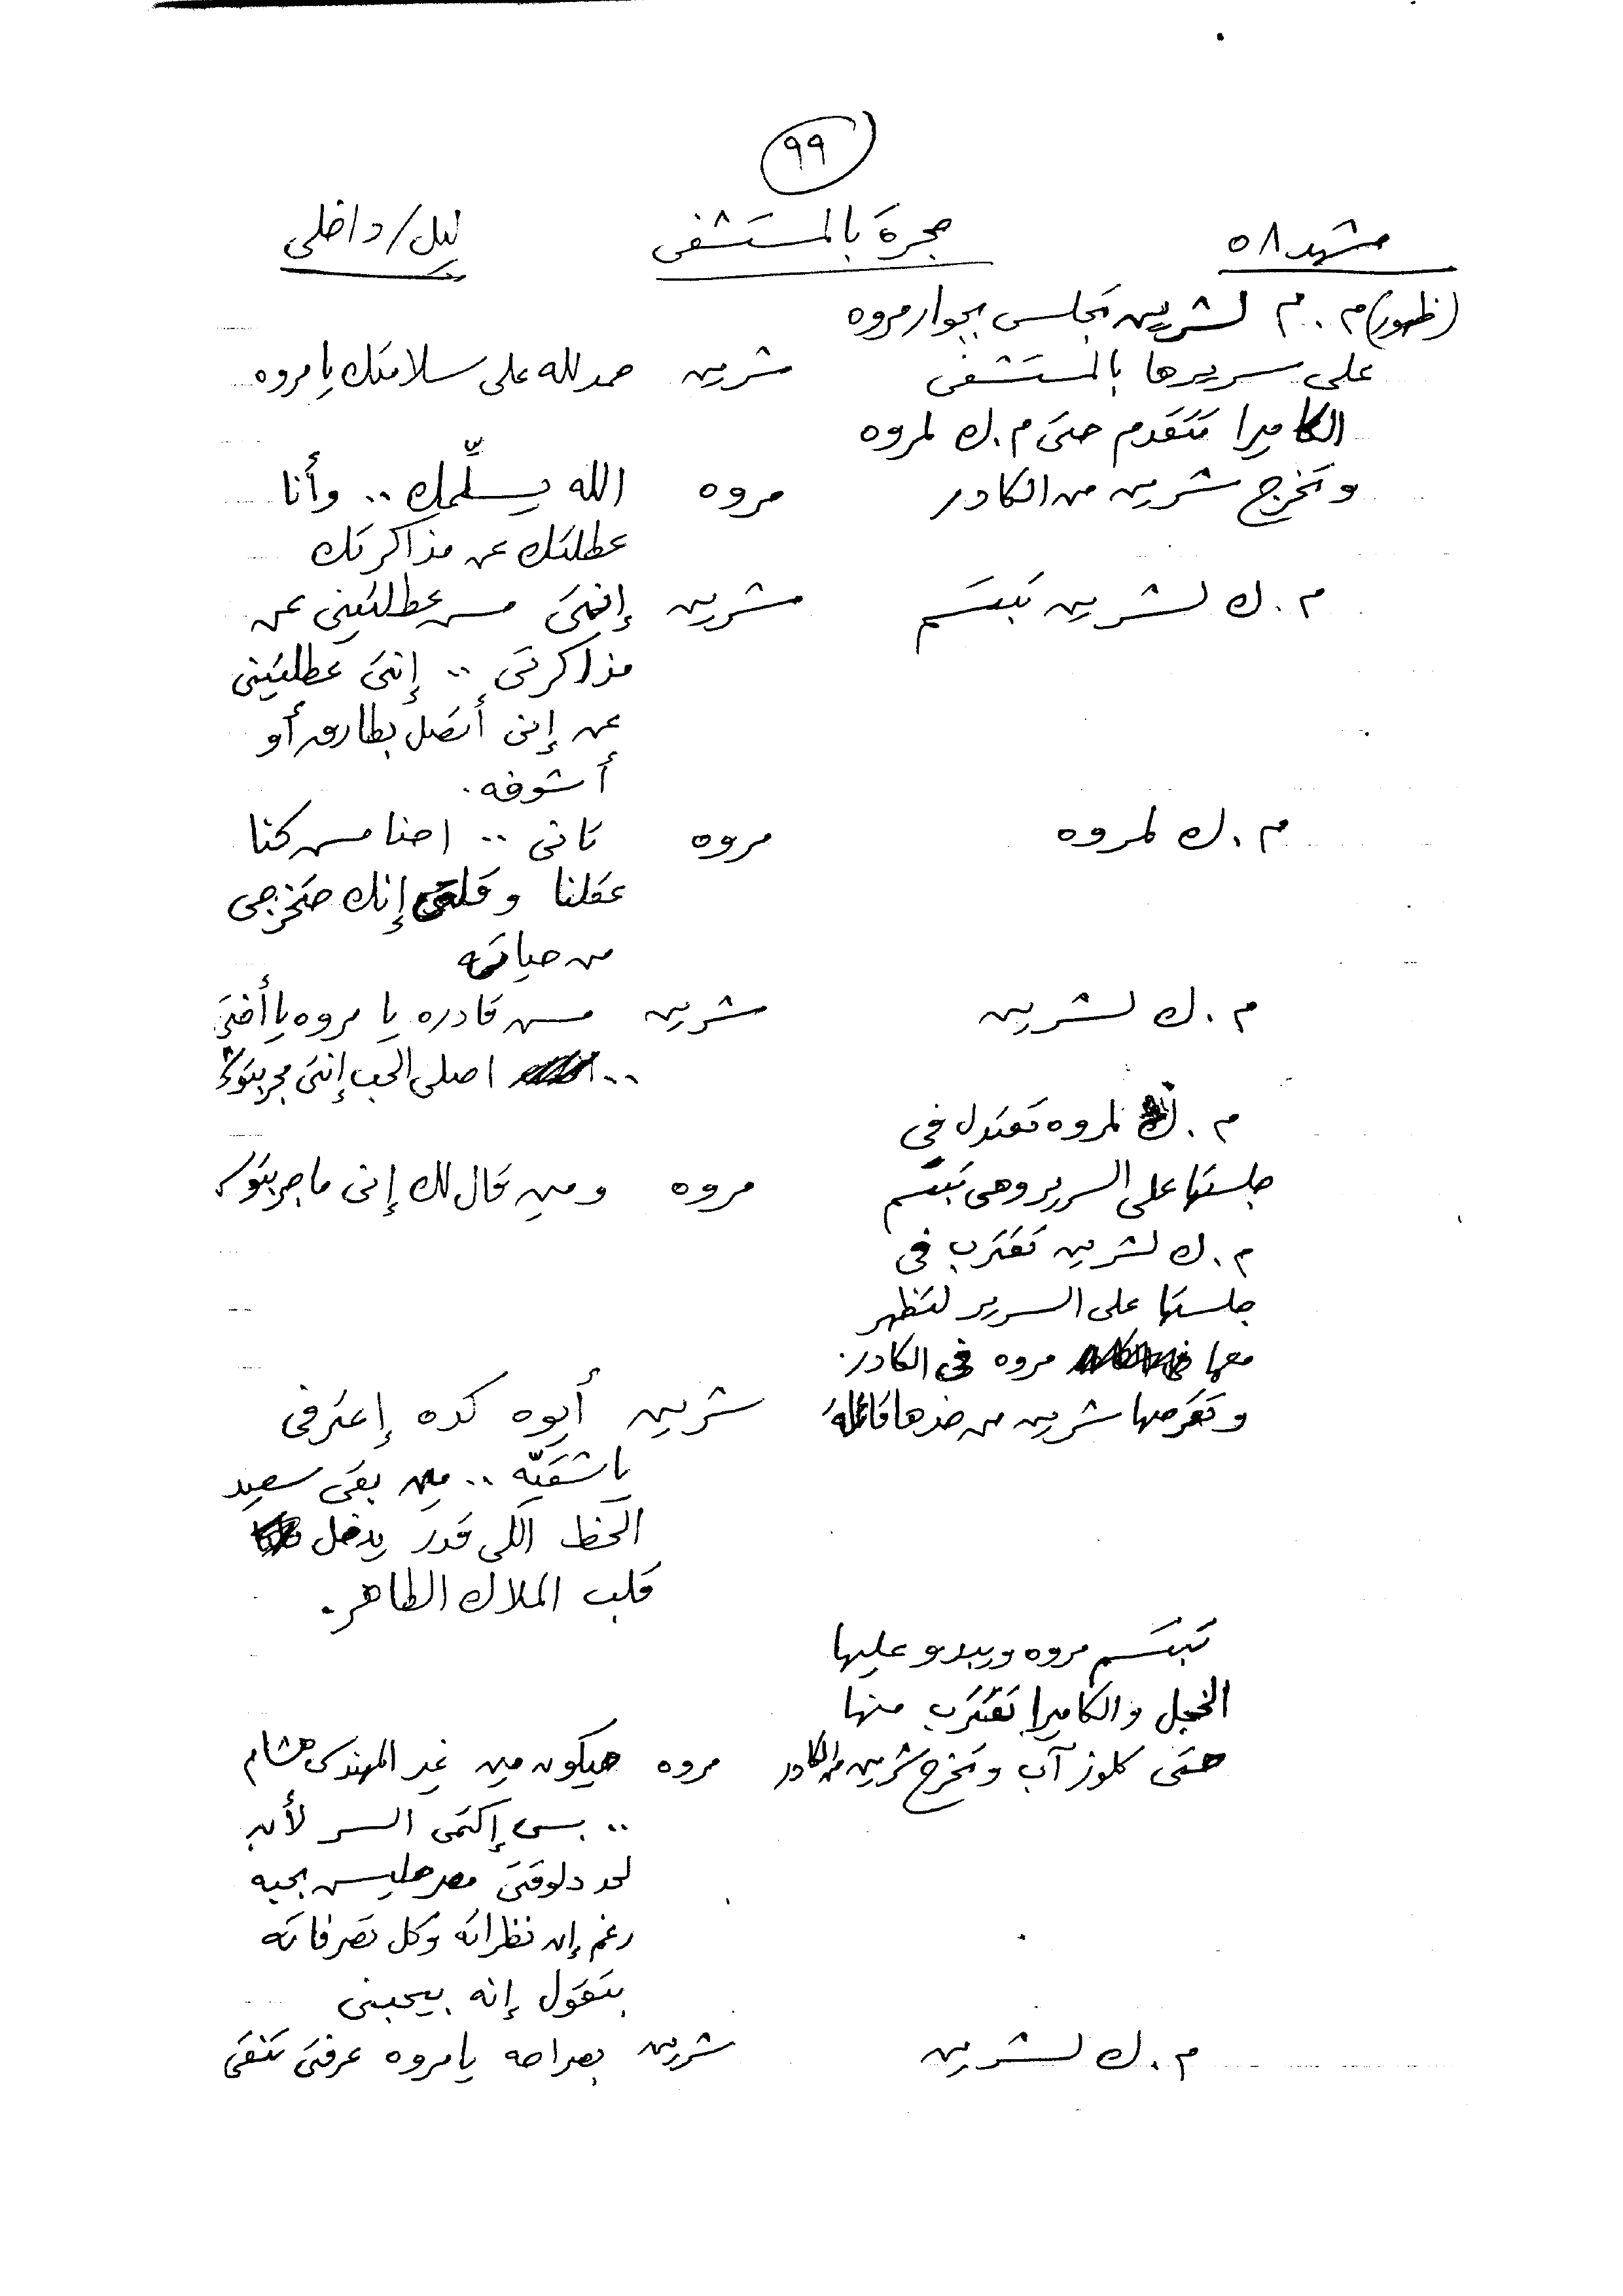 ٩٩
مشهد ٥٨ حجرة بالمستشفى ليل/داخلى
(ظهور) م . م لشرين تجلس بجوار مروه
على سريرها بالمستشفى شرين حمد لله على سلامتك يا مروه
الكاميرا تتقدم حتى م . ك لمروه
وتخرج شرين من الكادر مروه الله يسلّمك .. وأنا
عطلتك عن مذاكرتك
م . ك لشرين تبتسم شرين إنتى مش عطلتينى عن
مذاكرتى .. إنتى عطلتينى
عن إنى أتصل بطارق أو
أشوفه .
م . ك لمروه مروه تانى .. احنا مش كنا
عقلنا وقلتى إنك حتخرجى
من حياته
م . ك لشرين شرين مش قادره يا مروه يا أختى
.. اصلى الحب إنتى مجربتوش
م . ك لمروه تعتدل في
جلستها على السرير وهى تبتسم مروه ومين قال لك إنى ما جربتوش
م . ك لشرين تقترب فى
جلستها على السرير لتظهر
معها مروه فى الكادر .
وتقرصها شرين من خدها قائلة شرين أيوه كده إعترفى
يا شقيّه .. مين بقى سعيد
الحظ اللى قدر يدخل
قلب الملاك الطاهر .
تبتسم مروه ويبدو عليها
الخجل والكاميرا تقترب منها
حتى كلوز آب وتخرج شرين من الكادر مروه حيكون مين غير المهندس هشام
.. بس إكتمى السر لأن
لحد دلوقتى مصرحليش بحبه
رغم إن نظراته وكل تصرفاته
بتقول إنه بيحبنى
م . ك لشرين شرين بصراحه يا مروه عرفتى تنقى